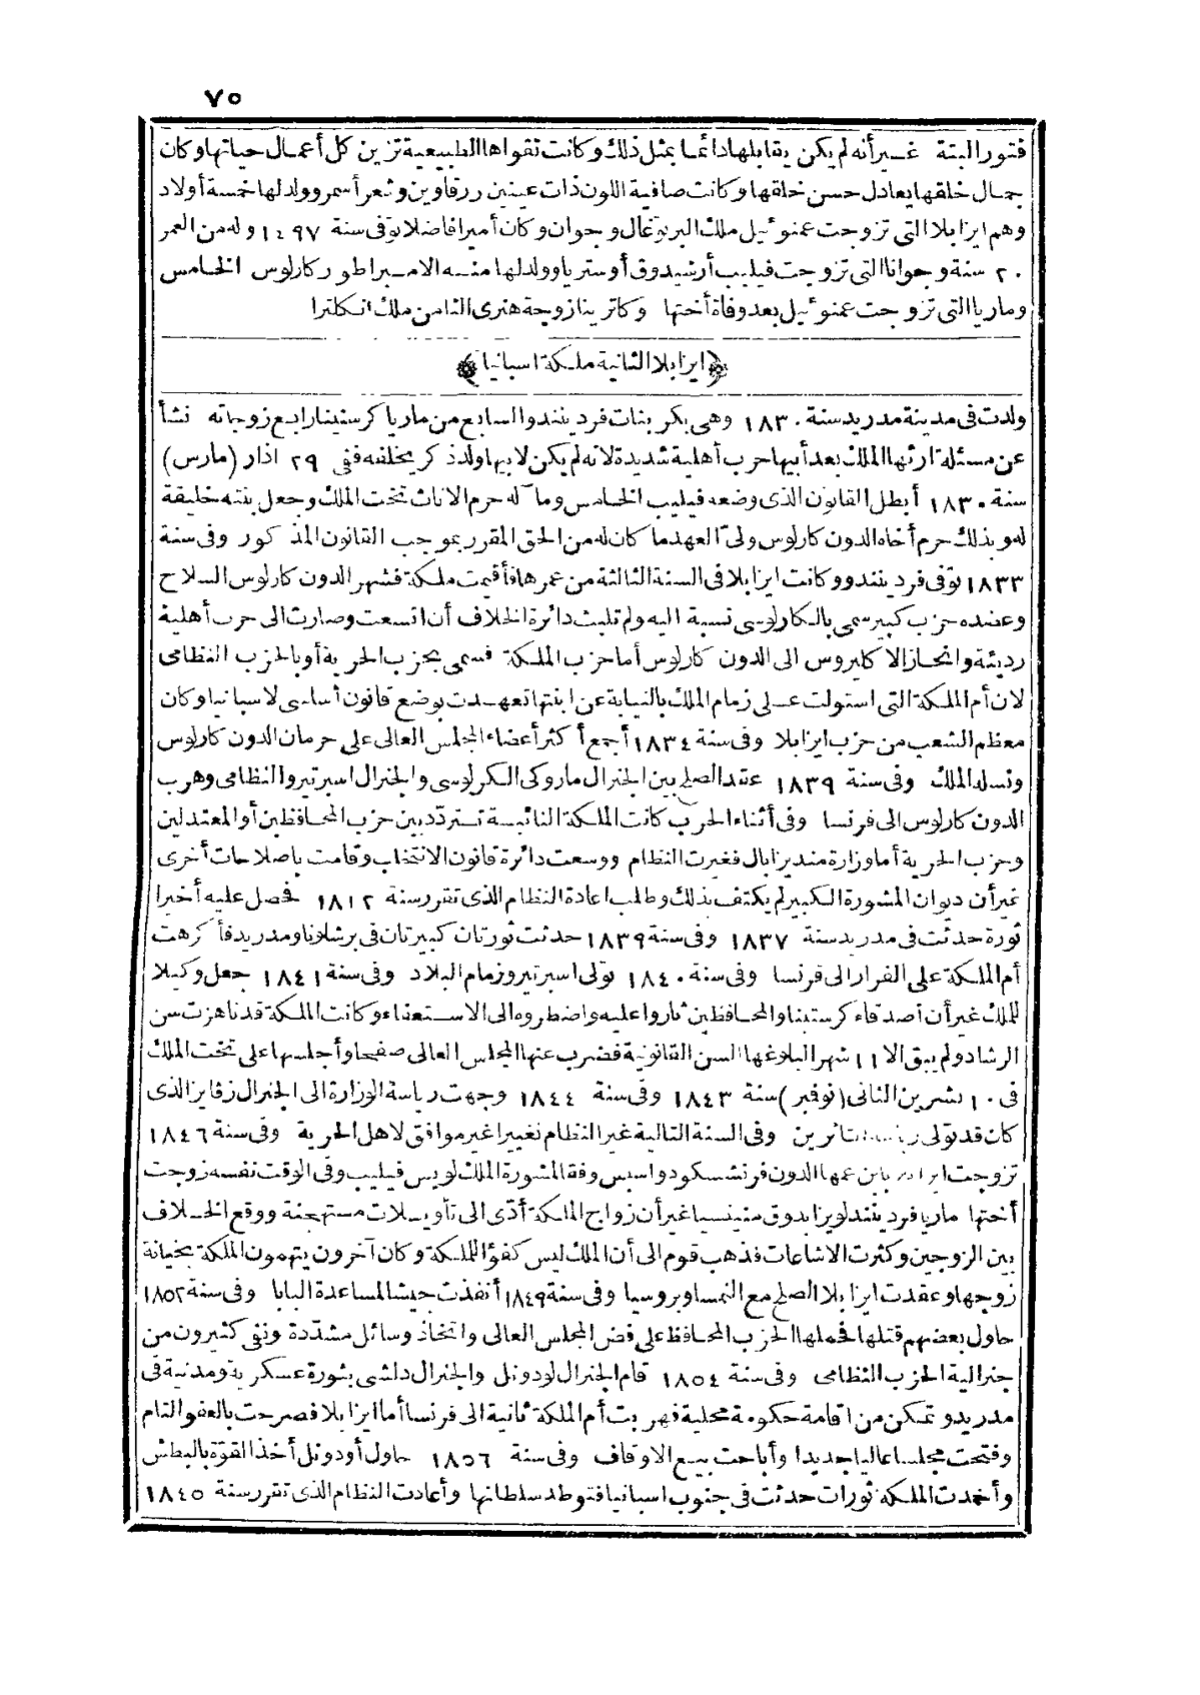 ٧٥
فتورا البتة غير أنه لم يكن يقابلها دائما بمثل ذلك وكانت تقواها الطبيعية تزين كل أعمال حياتها وكان
جمال خلقها يعادل حسن خلقها وكانت صافية اللون ذات عينين زرقاوين وشعر أسمر وولد لها خمسة أولاد
وهم ايزابلا التى تزوجت عمنوئيل ملك البرتوغال وجوان وكان أميرا فاضلا توفى سنة ١٤٩٧ وله من العمر
٢٠ سنة وجوانا التى تزوجت فيليب أرشيدوق أوستريا وولد لها منه الامبراطور كارلوس الخامس
وماريا التى تزوجت عمنوئيل بعد وفاة أختها وكاترينا زوجة هنرى الثامن ملك انكلترا
﴿ايزابلا الثانية ملكة اسبانيا﴾
ولدت فى مدينة مدريد سنة ١٨٣٠ وهى بكر بنات فردينندو السابع من ماريا كرستينا رابع زوجاته نشأ
عن مسئلة ارثها الملك بعد أبيها حرب أهلية شديدة لانه لم يكن لابيها ولد ذكر يخلفه ففى ٢٩ اذار (مارس)
سنة ١٨٣٠ أبطل القانون الذى وضعه فيليب الخامس ومآله حرم الاناث تخت الملك وجعل بنته خليفة
له وبذلك حرم أخاه الدون كارلوس ولىّ العهد ما كان له من الحق المقرر بموجب القانون المذكور وفى سنة
١٨٣٣ توفى فردينندو وكانت ايزابلا فى السنة الثالثة من عمرها فأقيمت ملكة فشهر الدون كارلوس السلاح
وعضده حزب كبير سمى بالكارلوسى نسبة اليه ولم تلبث دائرة الخلاف أن اتسعت وصارت الى حرب أهلية
رديئة وانحاز الاكليروس الى الدون كارلوس أما حزب الملكة فسمى بحزب الحرية أو بالحزب النظامى
لان أم الملكة التى استولت على زمام الملك بالنيابة عن ابنتها تعهدت بوضع قانون أساسى لاسبانيا وكان
معظم الشعب من حزب ايزابلا وفى سنة ١٨٣٤ أجمع أكثر أعضاء المجلس العالى على حرمان الدون كارلوس
ونسله الملك وفى سنة ١٨٣٩ عقد الصلح بين الجنرال ماروكى الكرلوسى والجنرال اسبرتيرو النظامى وهرب
الدون كارلوس الى فرنسا وفى أثناء الحرب كانت الملكة النائبة تتردّد بين حزب المحافظين أو المعتدلين
وحزب الحرية أما وزارة منديزابال فغيرت النظام ووسعت دائرة قانون الانتخاب وقامت باصلاحات أخرى
غير أن ديوان المشورة الكبير لم يكتف بذلك وطلب اعادة النظام الذى تقرر سنة ١٨١٢ فحصل عليه أخيرا
ثورة حدثت فى مدريد سنة ١٨٣٧ وفى سنة ١٨٣٩ حدثت ثورتان كبيرتان فى برشلونا ومدريد فأكرهت
أم الملكة على الفرار الى فرنسا وفى سنة ١٨٤٠ تولى اسبرتيرو زمام البلاد وفى سنة ١٨٤١ جعل وكيلا
للملك غير أن أصدقاء كرستينا والمحافظين ثاروا عليه واضطروه الى الاستعفاء وكانت الملكة قد ناهزت سن
الرشاد ولم يبق الا ١١ شهر البلاغها السن القانونية فضرب عنها المجلس العالى صفحا وأجلسها على تخت الملك
فى ١٠ تشرين الثانى (نوفمبر) سنة ١٨٤٣ وفى سنة ١٨٤٤ وجهت رياسة الوزارة الى الجنرال نرفايز الذى
كان قد تولى ثائرين وفى السنة التالية غير النظام تغييرا غير موافق لاهل الحرية وفى سنة ١٨٤٦
تزوجت ايزابلا بابن عمها الدون فرنشسكو دواسيس وفقا لمشورة الملك لويس فيليب وفى الوقت نفسه زوجت
أختها ماريا فرديننند لويزا بدوق منپنسيا غير أن زواج الملكة أدّى الى تأويلات مستهجنة ووقع الخلاف
بين الزوجين وكثرت الاشاعات فذهب قوم الى أن الملك ليس كفؤا للملكة وكان آخرون يتهمون الملكة بخيانة
زوجها وعقدت ايزابلا الصلح مع النمسا وبروسيا وفى سنة ١٨٤٩ أنفذت جيشا لمساعدة البابا وفى سنة ١٨٥٢
حاول بعضهم قتلها فحملها الحزب المحافظ على فض المجلس العالى واتخاذ وسائل مشدّدة ونفى كثيرون من
جنرالية الحزب النظامى وفى سنة ١٨٥٤ قام الجنرال لودونل والجنرال دلشى بثورة عسكرية ومدنية فى
مدريد وتمكن من اقامة حكومة محلية فهربت أم الملكة ثانية الى فرنسا أما ايزابلا فصرحت بالعفو التام
وفتحت مجلسا عاليا جديدا وأباحت بيع الاوقاف وفى سنة ١٨٥٦ حاول أودونل أخذ القوّة بالبطش
وأخمدت الملكة ثورات حدثت فى جنوب اسبانيا فتوطد سلطانها وأعادت النظام الذى تقرر سنة ١٨٤٥